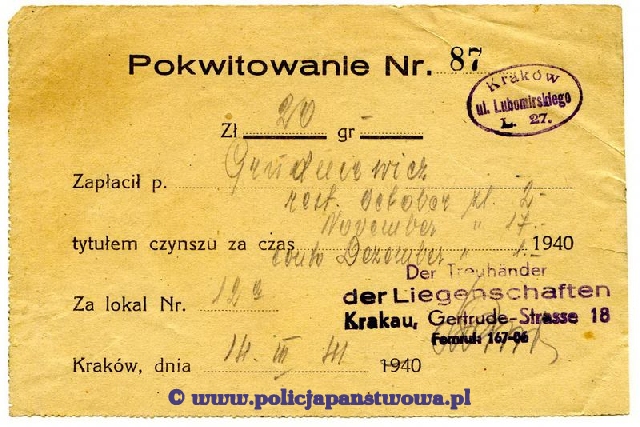 Pokwitowanie Nr. 87
Kraków
ul. Lubomirskiego
L. 27.
Zł 20 gr –
Zapłacił p. Grudniewicz
rest. October zł. 2.-
November " 17.-
tytułem czynszu za czas 1940
conto Dezember " 1.-
Der Treuhänder
der Liegenschaften
Za lokal Nr. 12a
Krakau, Gertrude-Strasse 18
Fernruf: 167-06
Kraków, dnia 14. III 41 1940
© www.policjapanstwowa.pl